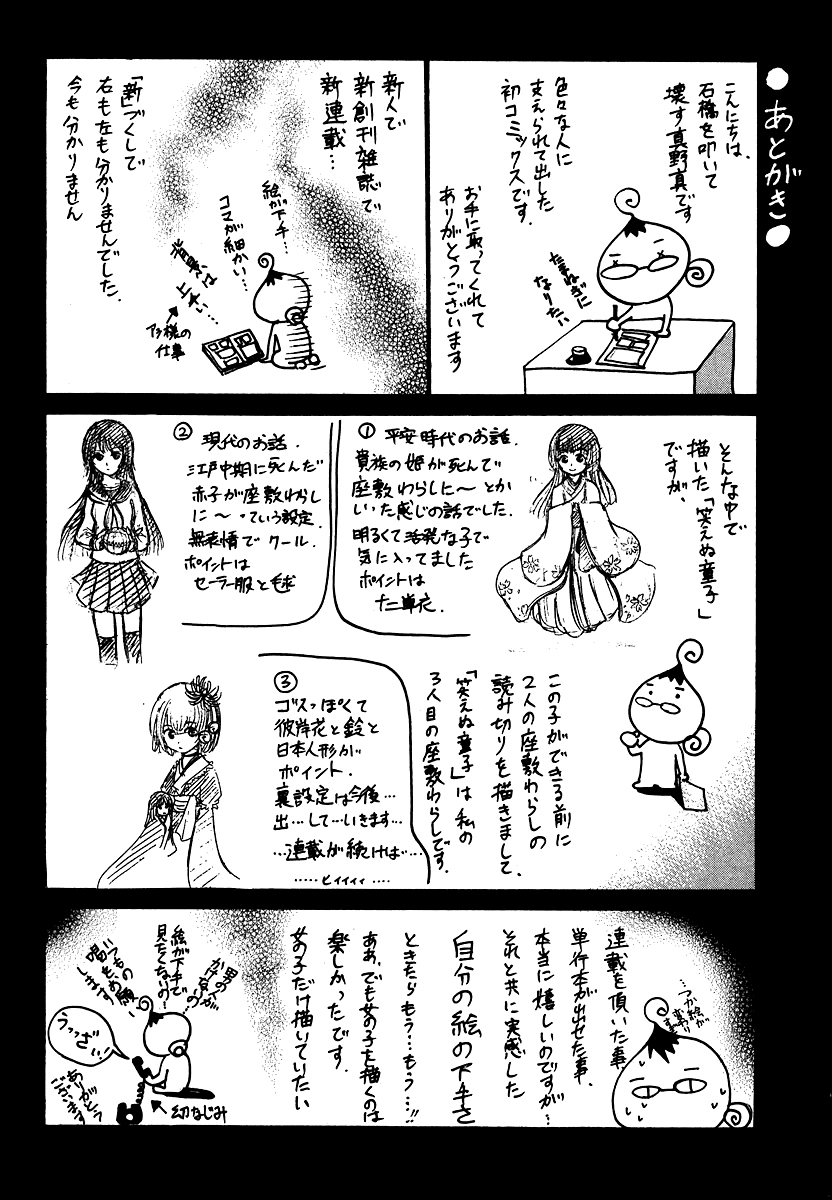 ●あとがき●
こんにちは、
石橋を叩いて
壊す真野真です
色々な人に
支えられて出した
初コミックスです.
お手に取ってくれて
ありがとうございます
たまねぎに
なりたい
新人で
新創刊雑誌で
新連載…
「新」づくしで
右も左も分かりませんでした.
今も分かりません
絵が下手…
コマが細かい…
背景は
上手い…
アシ様の
仕事
そんな中で
描いた「笑えぬ童子」
ですが、
この子ができる前に
2人の座敷わらしの
読み切りを描きまして、
「笑えぬ童子」は私の
3人目の座敷わらしです.
① 平安時代のお話.
貴族の姫が死んで
座敷わらしに〜とか
いった感じの話でした.
明るくて活発な子で
気に入ってました
ポイントは
十二単衣.
② 現代のお話.
江戸中期に死んだ
赤子が座敷わらし
に〜っていう設定
無表情でクール.
ポイントは
セーラー服と毬
③
ゴスっぽくて
彼岸花と鈴と
日本人形が
ポイント.
裏設定は今後…
出…して…いきます…
…連載が続けば…
……ヒィィィィ……
連載を頂いた事、
単行本が出せた事、
本当に嬉しいのですが…
それと共に実感した
自分の絵の下手さ
ときたらもう…もう…!!
ああ、でも女の子を描くのは
楽しかったです.
女の子だけ描いていたい
男の人が
かけないの…
絵が下手で
見たくないの!
いつもの
喝をお願い
します
うっざい…
幼なじみ
ありがとう
ございます